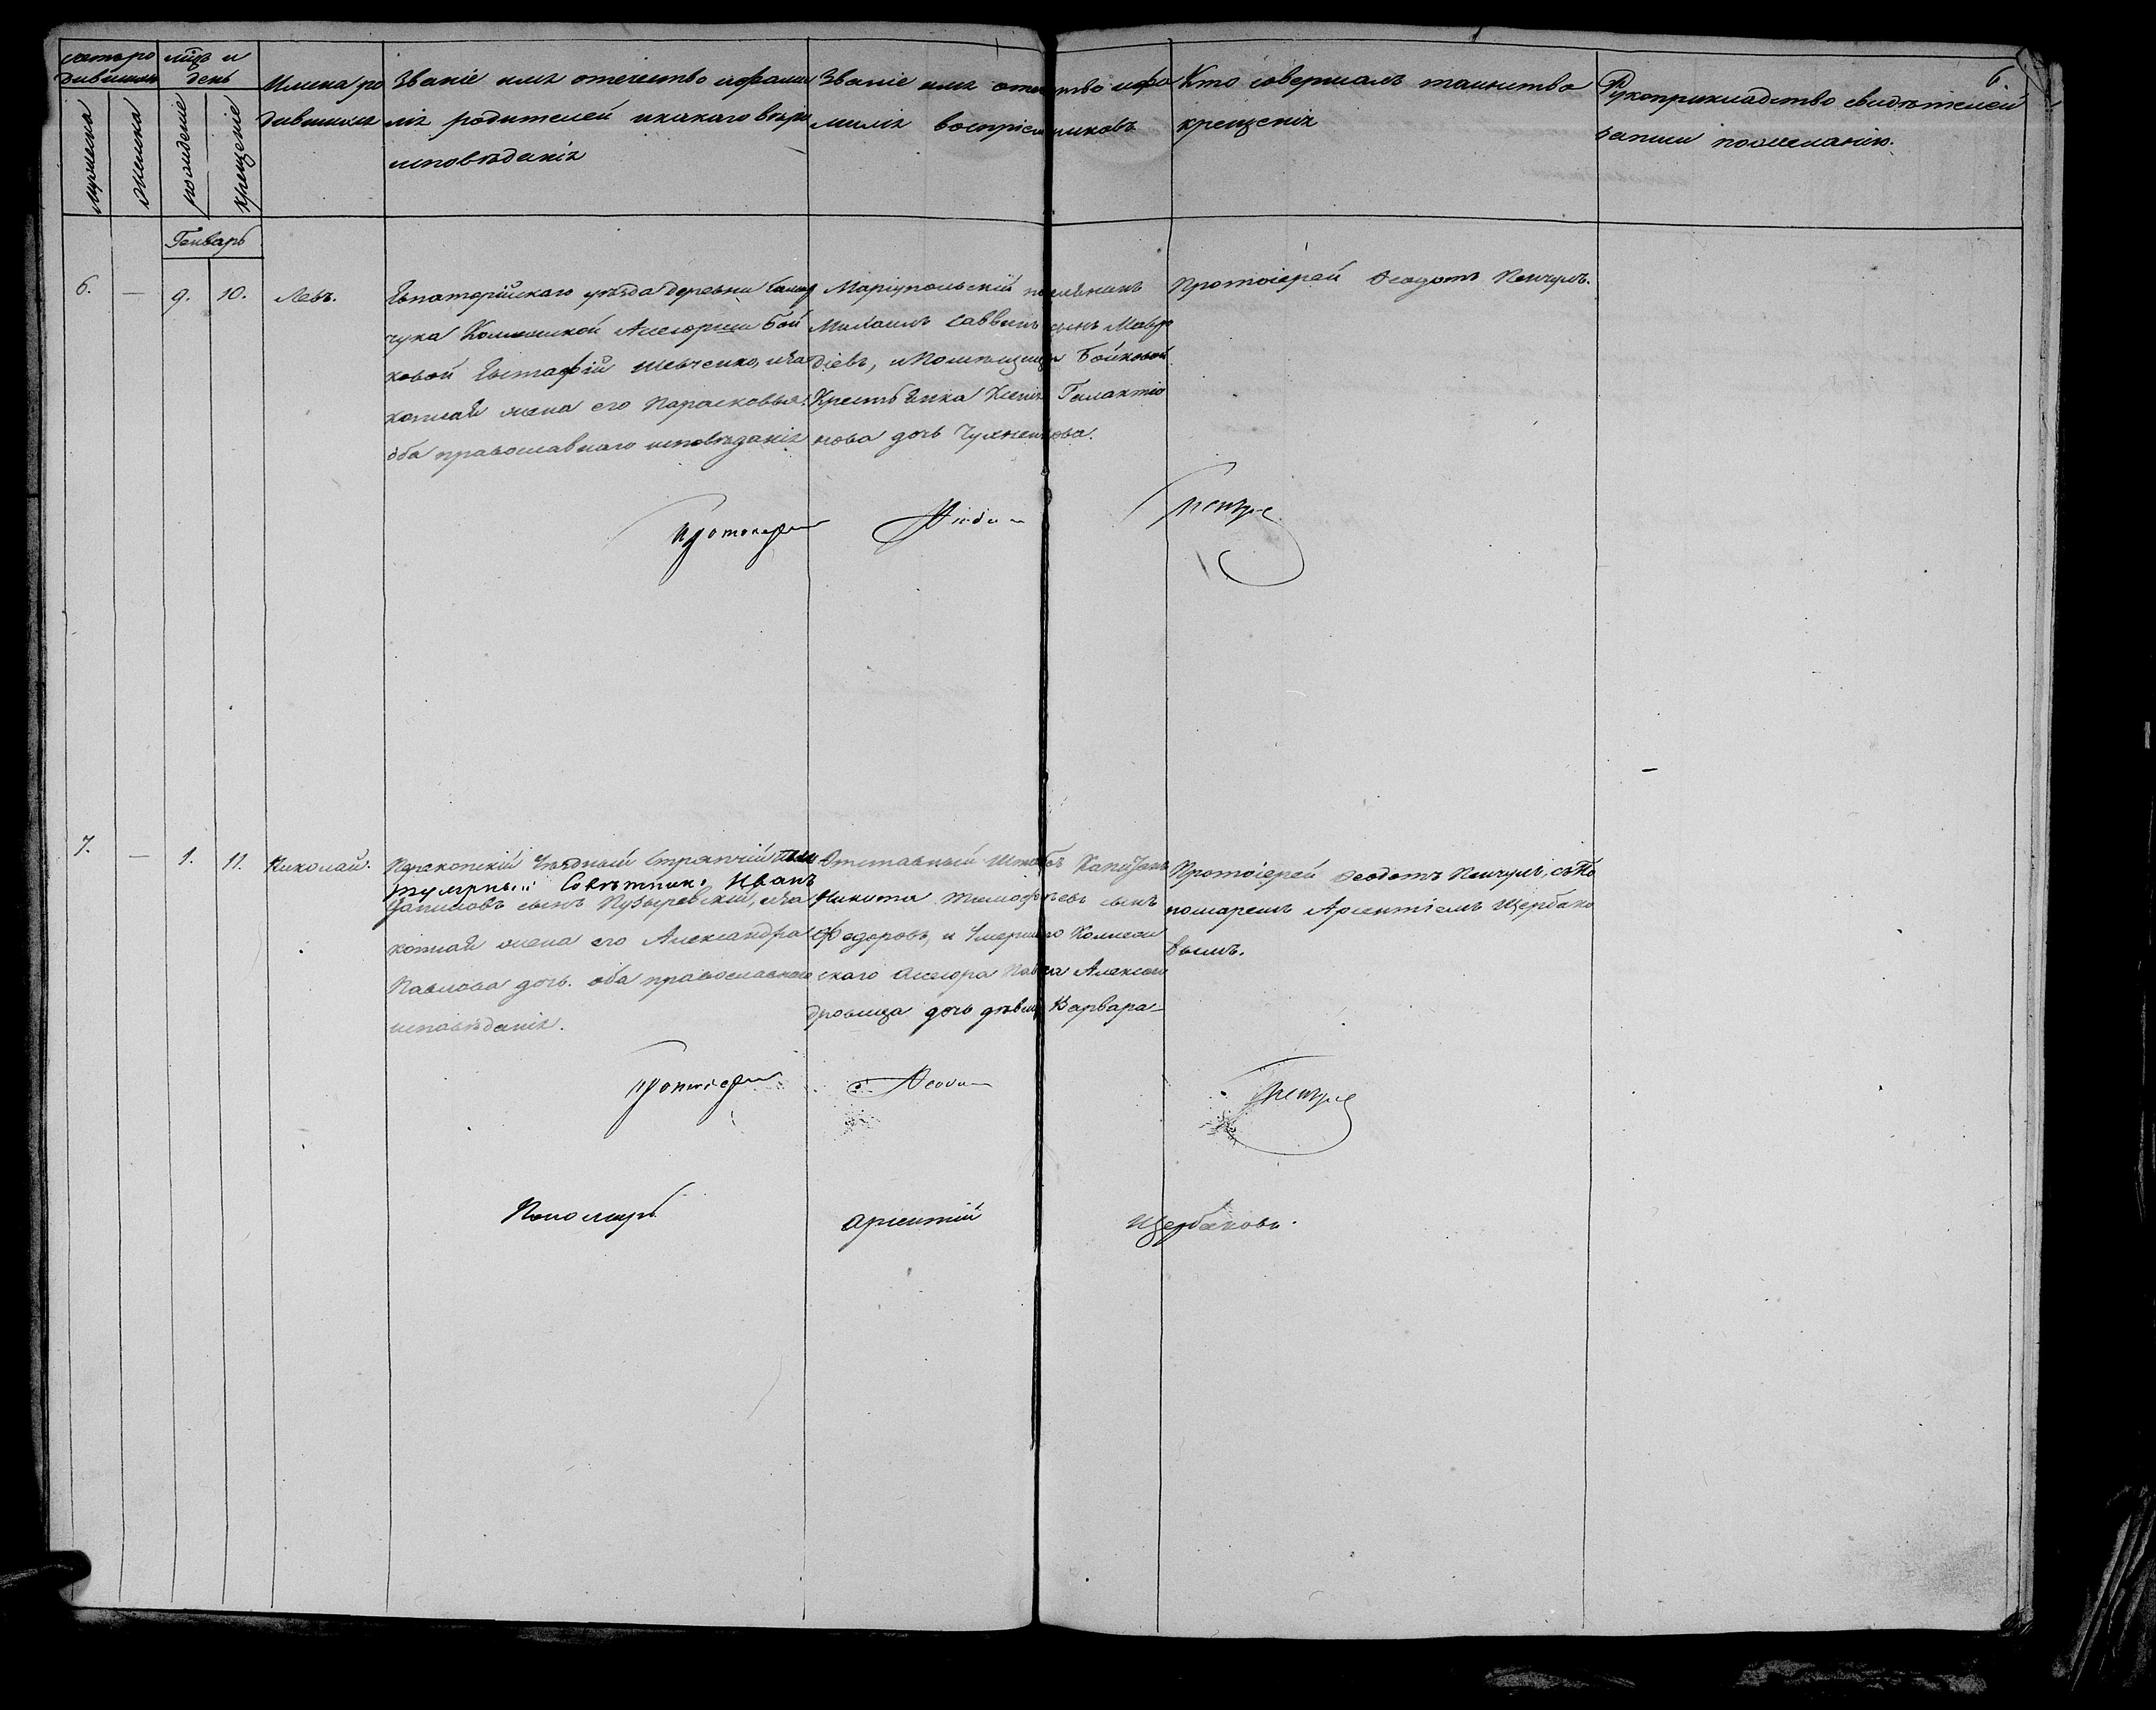 6
счетъ ро
дившихся
мужеска
женска
мцъ и
день
рожденіе
крещеніе
Имена ро
дившихся
Званіе имя отечество и фами
лія родителей и какаго вѣро
исповѣданія
Званіе имя отечество и фа
милія воспріемниковъ
Кто совершалъ таинство
крещенія
Рукоприкладство свидѣтелей
записи по желанію.
Генварь
6.
—
9.
10.
Левъ.
Евпаторійскаго уѣзда деревни
чука Ассесорши Бой
ковой Евстафій Шевченко, и за
конная жена его Парасковья.
оба православнаго исповѣданія
Маріупольскій поселянинъ
Михаилъ Саввинъ сынъ
діевъ, и Помѣщицы Бойковой
Крестьянка Ксенія Галактіо
нова дочь
Протоіерей Ѳеодотъ Пенчулъ.
Протоіерей
Ѳеодотъ
Пенчулъ
7.
—
1.
11.
Николай.
Перекопскій Уѣздный Стряпчій
Титулярный Совѣтникъ Иванъ
сынъ Пузыревскій, и за
конная жена его Александра
Павлова дочь. оба православнаго
исповѣданія.
Отставный Штабсъ Капитанъ
Никита Тимофѣевъ сынъ
Федоровъ, и Умершаго Коллеж
скаго Ассесора Павла Алексан
дровича дочь дѣвица Варвара
Протоіерей Ѳеодотъ Пенчулъ, съ По
номаремъ Арсентіемъ Щербако
вымъ.
Протоіерей
Ѳеодотъ
Пенчулъ
Пономарь
Арсентій
Щербаковъ.